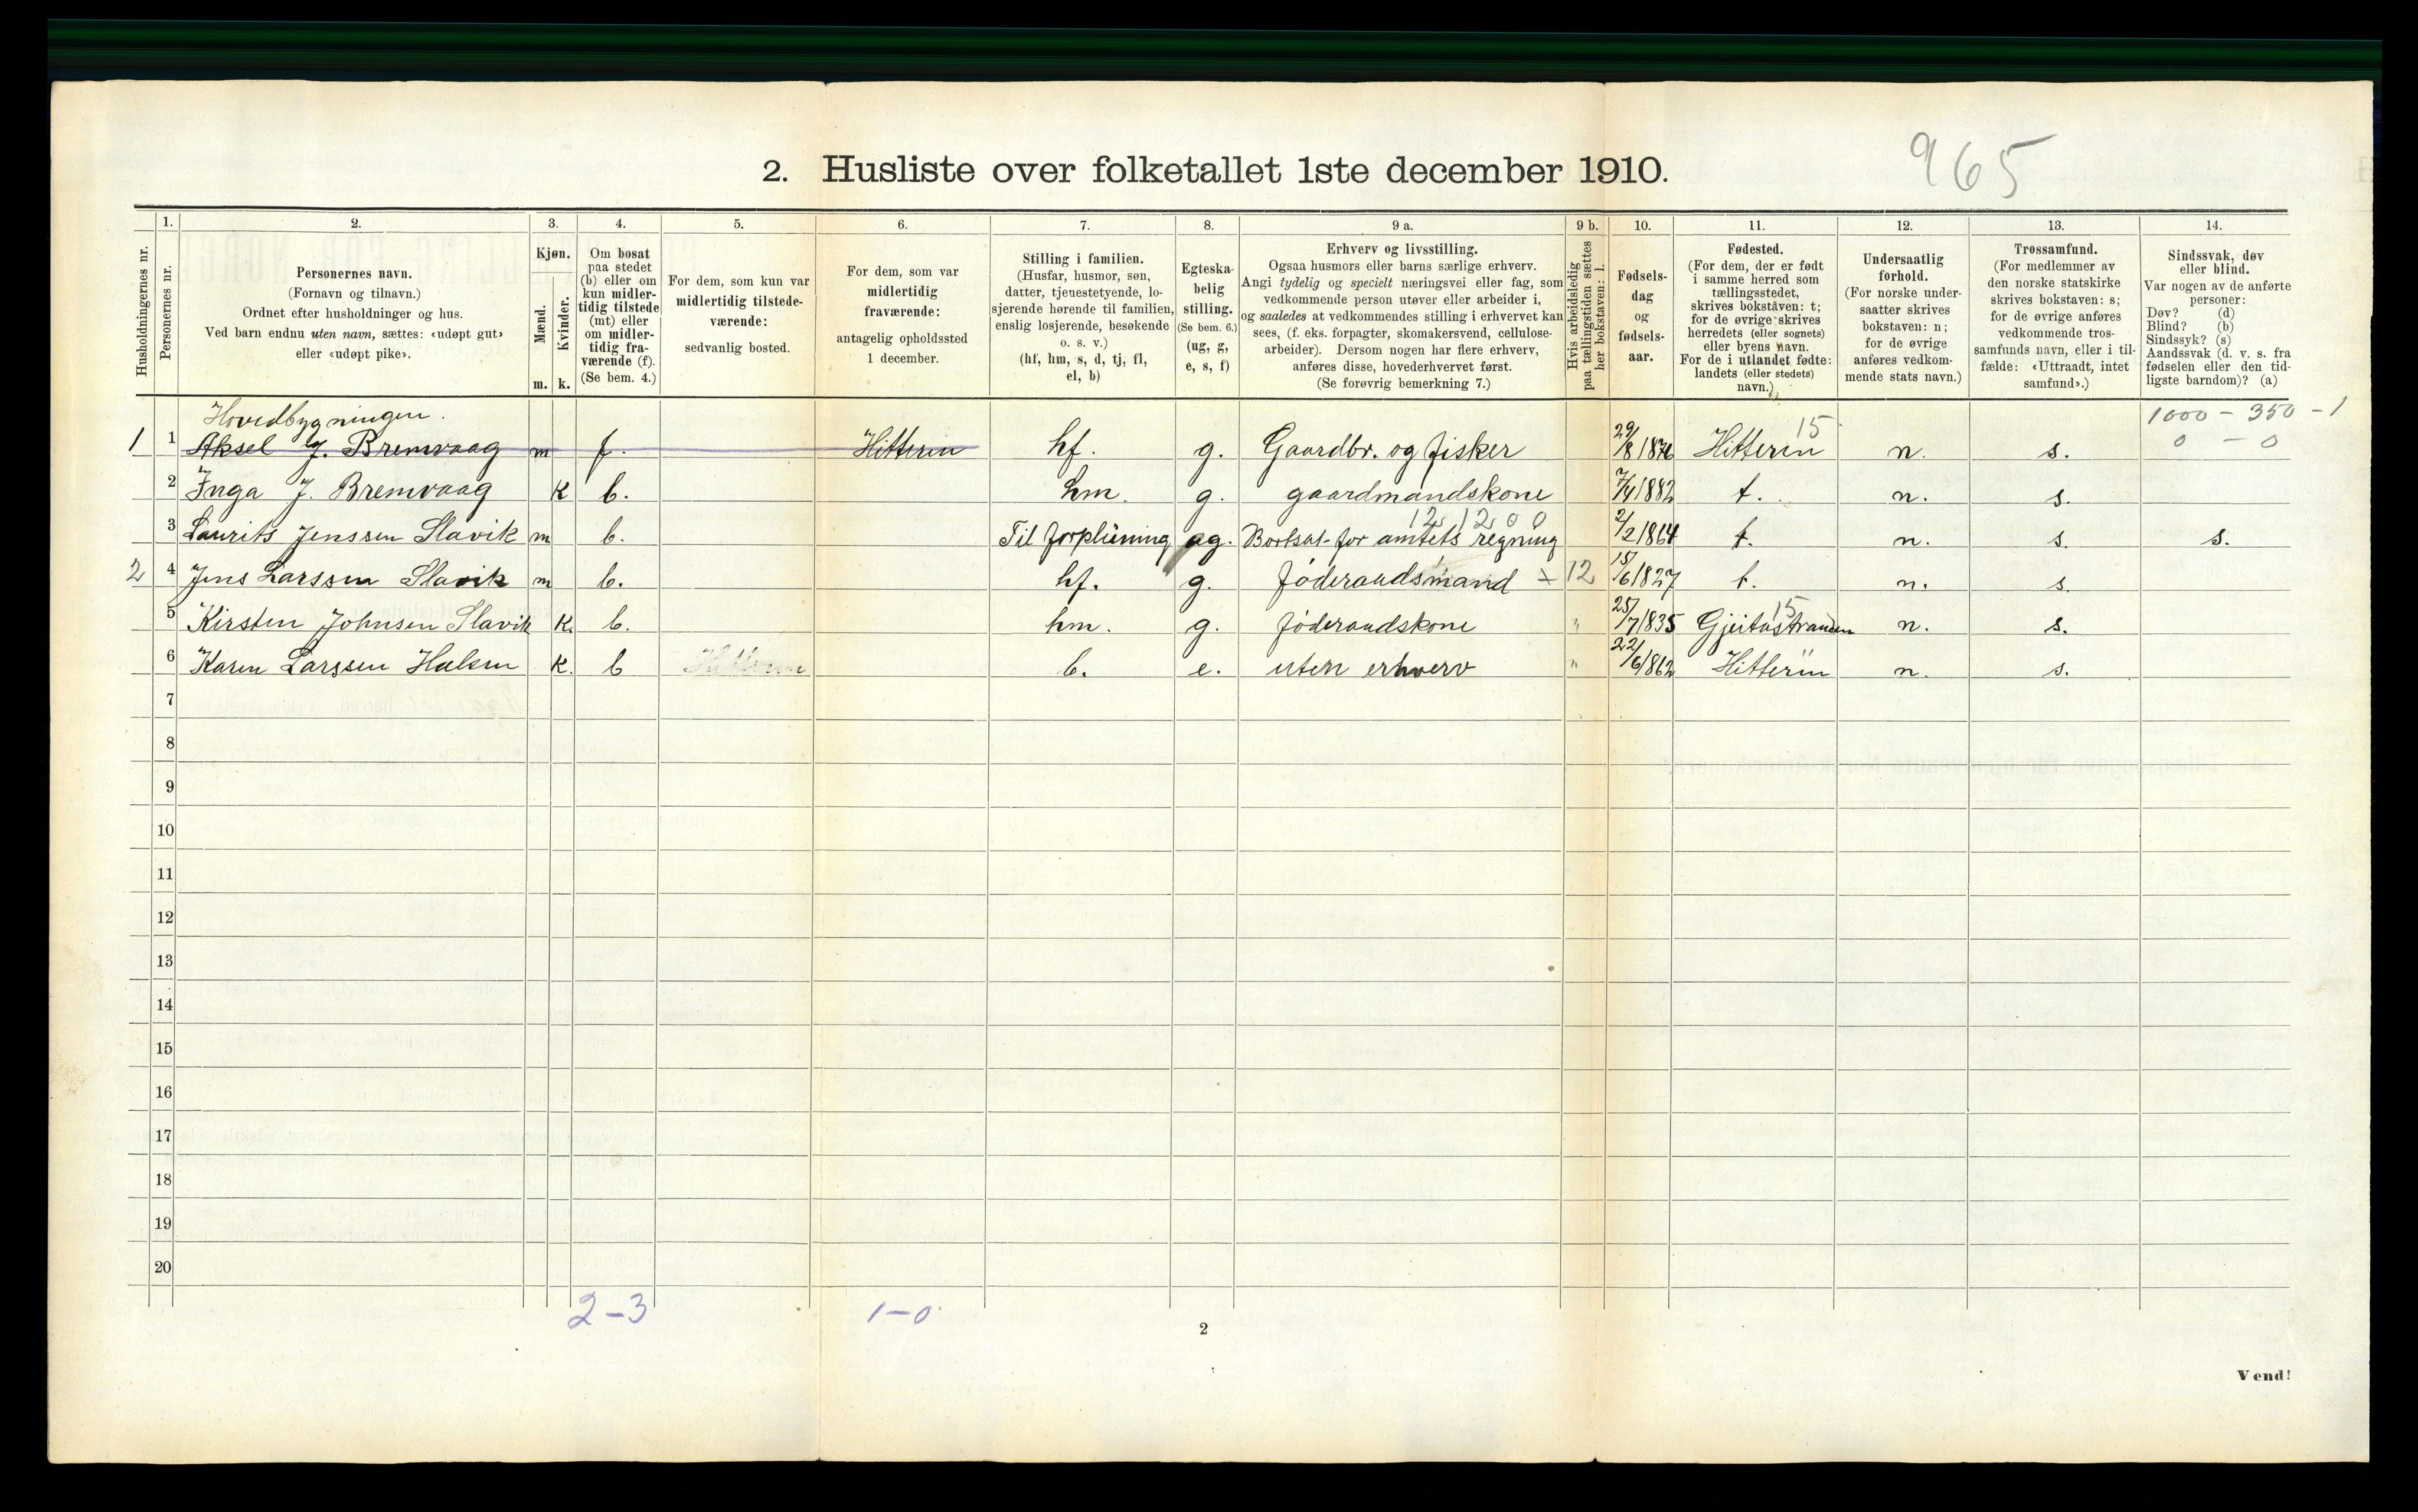 2. Husliste over folketallet 1ste december 1910.
965
Husholdningernes nr.
1. Personernes nr.
2. Personernes navn. (Fornavn og tilnavn.) Ordnet efter husholdninger og hus. Ved barn endnu uten navn, sættes: «udøpt gut» eller «udøpt pike».
3. Kjøn. Mænd. m. Kvinder. k.
4. Om bosat paa stedet (b) eller om kun midlertidig tilstede (mt) eller om midlertidig fraværende (f). (Se bem. 4.)
5. For dem, som kun var midlertidig tilstedeværende: sedvanlig bosted.
6. For dem, som var midlertidig fraværende: antagelig opholdssted 1 december.
7. Stilling i familien. (Husfar, husmor, søn, datter, tjenestetyende, losjerende hørende til familien, enslig losjerende, besøkende o. s. v.) (hf, hm, s, d, tj, fl, el, b)
8. Egteskabelig stilling. (Se bem. 6.) (ug, g, e, s, f)
9 a. Erhverv og livsstilling. Ogsaa husmors eller barns særlige erhverv. Angi tydelig og specielt næringsvei eller fag, som vedkommende person utøver eller arbeider i, og saaledes at vedkommendes stilling i erhvervet kan sees, (f. eks. forpagter, skomakersvend, cellulosearbeider). Dersom nogen har flere erhverv, anføres disse, hovederhvervet først. (Se forøvrig bemerkning 7.)
9 b. Hvis arbeidsledig paa tællingstiden sættes her bokstaven: l.
10. Fødselsdag og fødselsaar.
11. Fødested. (For dem, der er født i samme herred som tællingsstedet, skrives bokstaven: t; for de øvrige skrives herredets (eller sognets) eller byens navn. For de i utlandet fødte: landets (eller stedets) navn.)
12. Undersaatlig forhold. (For norske undersaatter skrives bokstaven: n; for de øvrige anføres vedkommende stats navn.)
13. Trossamfund. (For medlemmer av den norske statskirke skrives bokstaven: s; for de øvrige anføres vedkommende trossamfunds navn, eller i tilfælde: «Uttraadt, intet samfund».)
14. Sindssvak, døv eller blind. Var nogen av de anførte personer: Døv? (d) Blind? (b) Sindssyk? (s) Aandssvak (d. v. s. fra fødselen eller den tidligste barndom)? (a)
Hovedbygningen. 15 1000 - 350 - 1
1 1 Aksel J. Bremvaag m f. Hitteren hf. g. Gaardbr. og fisker 29/8 1876 Hitteren n. s. 0 - 0
2 Inga J. Bremvaag K b. hm. g. gaardmandskone 7/4 1882 t. n. s.
12 1200
3 Laurits Jenssen Slavik m b. Til forpleining ug. Bortsat for amtets regning 2/2 1864 t. n. s. s.
2 4 Jens Larssen Slavik m b. hf. g. føderaadsmand x 12 15/6 1827 t. n. s.
15
5 Kirsten Johnsen Slavik K. b. hm. g. føderaadskone " 25/7 1835 Gjeitastranden n. s.
6 Karen Larssen Halsen K. b Hitteren b. e. uten erhverv " 22/6 1862 Hitteren n. s.
7
8
9
10
11
12
13
14
15
16
17
18
19
20
2-3 1-0
2
Vend!